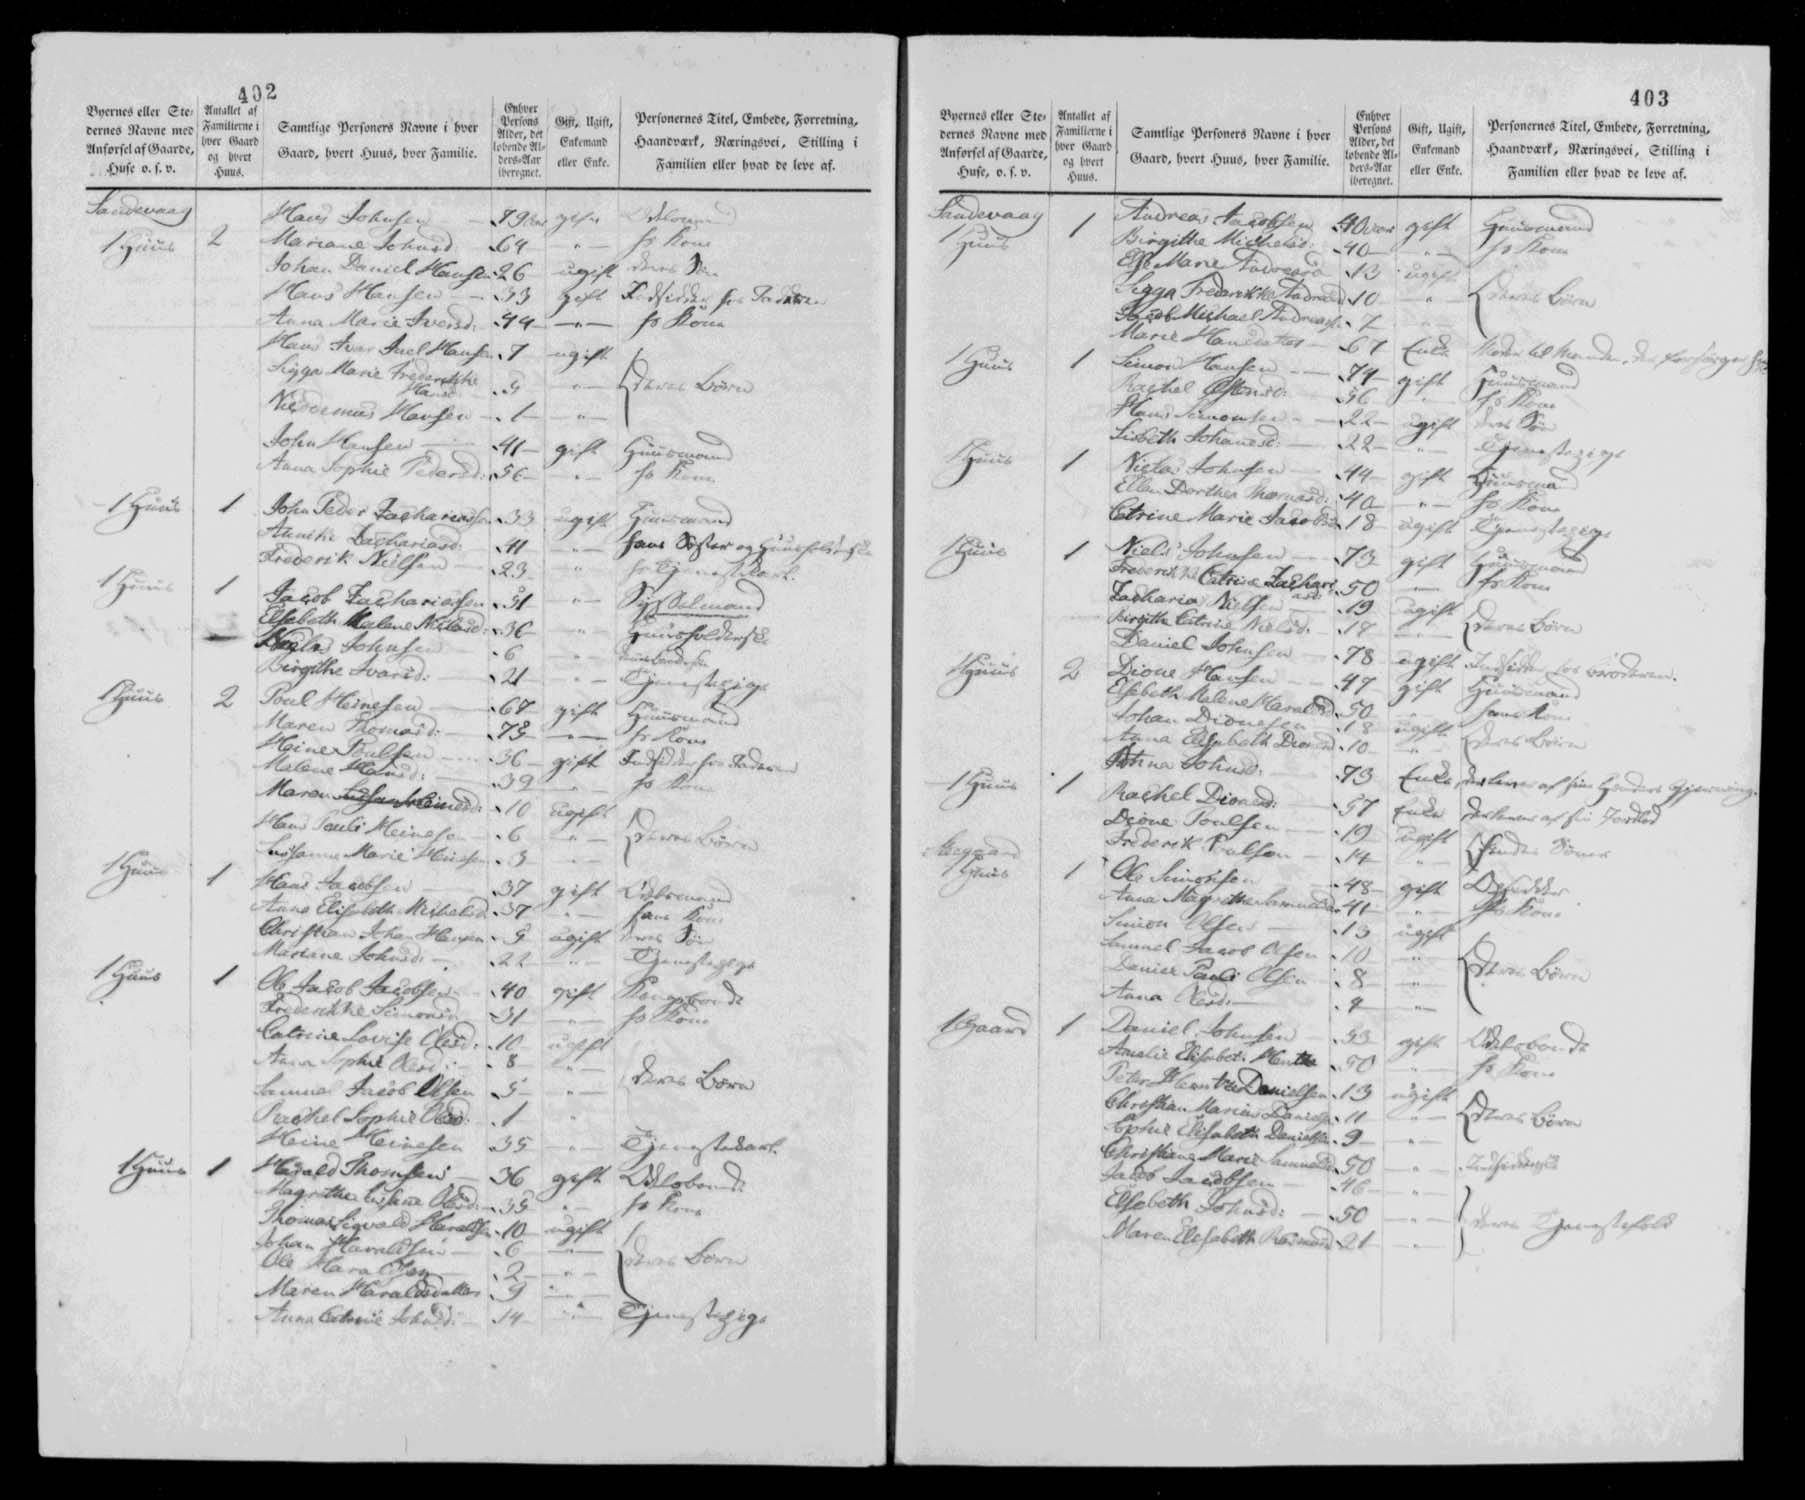 402
Byernes eller Ste-
dernes Navne med
Anførsel af Gaarde,
Huse o. s. v.
Antallet af
Familierne i
hver Gaard
og hvert
Huus.
Samtlige Personers Navne i hver
Gaard, hvert Huus, hver Familie.
Enhver
Persons
Alder, det
løbende Al-
ders-Aar
iberegnet.
Gift, Ugift,
Enkemand
eller Enke.
Personernes Titel, Embede, Forretning,
Haandværk, Næringsvei, Stilling i
Familien eller hvad de leve af.
Sandevaag Hans Johnsen 79 Aar gift
1 Huus 2 Mariane Johnsd 64 " hs Kone
Johan Daniel Hansen 26 ugift deres Søn
Hans Hansen 33 gift Indsidder hos Faderen
Anna Marie Iversd: 44 " hs Kone
Hans Iver Juel Hansen 7 ugift
Sigga Marie Frederikke Hansd 5 " deres Børn
Nicodemus Hansen 1 "
John Hansen 41 gift Huusmand
Anna Sophie Pedersd: 56 " hs Kone
1 Huus 1 John Peder Zachariassen 33 ugift Huusmand
Annike Zachariasd: 41 " hans Søster og Huusholderske
Frederik Nielsen 23 " hs Tjenestekarl
1 Huus 1 Jacob Zachariassen 51 " Sysselmand
Elsebeth Malene Niclasd: 36 " Huusholderske
Johnsen 6 "
Birgithe Ivarsd: 21 " Tjenestepige
1 Huus 2 Poul Heinesen 67 gift Huusmand
Maren Thomasd: 75 " hs Kone
Heine Poulsen 36 gift Indsidder hos Faderen
Malene Hansd: 39 " hs Kone
Maren Heinesd: 10 ugift
Hans Pauli Heinesen 6 " deres Børn
Susanne Marie Heinesd 3 "
1 Huus 1 Hans Jacobsen 37 gift Odelsmand
Anna Elisabeth Michelsd 37 " hans Kone
Christian Johan Hansen 5 ugift deres Søn
Mariane Johnsd: 22 " Tjenestepige
1 Huus 1 Ole Jacob Jacobsen 40 gift Kongsbonde
Frederikke Simonsd 31 " hs Kone
Catrine Lovise Olesd: 10 ugift
Anna Sophie Olesd: 8 "
Samuel Jacob Olsen 5 " deres Børn
Rachel Sophie Olesd: 1 "
Heine Heinesen 35 " Tjenestekarl
1 Huus 1 Harald Thomsen 36 gift Odelsbonde
Magrethe Susane Olesd: 35 " hs Kone
Thomas Sigvald Haraldsen 10 ugift
Johan Haraldsen 6 "
Ole Haraldsen 2 " deres Børn
Maren Haraldsdatter 9 "
Anna Catrine Johnsd: 14 " Tjenestepige
403
Byernes eller Ste-
dernes Navne med
Anførsel af Gaarde,
Huse, o. s. v.
Antallet af
Familierne i
hver Gaard
og hvert
Huus.
Samtlige Personers Navne i hver
Gaard, hvert Huus, hver Familie.
Enhver
Persons
Alder, det
løbende Al-
ders-Aar
iberegnet.
Gift, Ugift,
Enkemand
eller Enke.
Personernes Titel, Embede, Forretning,
Haandværk, Næringsvei, Stilling i
Familien eller hvad de leve af.
Sandevaag 1 Andreas Jacobsen 40 Aar gift Huusmand
1 Huus Birgithe Michelsd: 40 " hs Kone
Else Marie Andreasd 13 ugift
Sigga Frederikke Andreasd 10 " deres Børn
Jacob Michael Andreasen 7 "
Marie Hansdatter 67 Enke Moder til Manden, der forsørger
1 Huus 1 Simon Hansen 74 gift Huusmand
Rachel 56 " hs Kone
Hans Simonsen 22 ugift deres Søn
Lisbeth Johanesd: 22 " Tjenestepige
1 Huus 1 Niclas Johnsen 44 gift Huusmand
Ellen Dorthea Thomasd: 40 " hs Kone
Catrine Marie Jacobsd 18 ugift Tjenestepige
1 Huus 1 Niels Johnsen 73 gift Huusmand
Frederikke Catrine Zachariasd: 50 " hs Kone
Zacharias Nielsen 19 ugift
Birgithe Catrine Nielsd: 18 " deres Børn
Daniel Johnsen 78 ugift Indsidder hos Broderen.
1 Huus 2 Dione Hansen 47 gift Huusmand
Elsebeth Malene Haraldsd 50 " hans Kone
Johan Dionesen 18 ugift
Anna Elisabeth Dionesd 10 " deres Børn
Johnsd: 73 Enke der lever af sine Hænders Gjerning.
1 Huus 1 Rachel Dionesd: 57 Enke der lever af sin Jordlod
Dione Poulsen 19 ugift
Frederik Poulsen 14 " hendes Sønner
1 Huus 1 Ole Simonsen 48 gift
Anna Magrethe Samuelsd 41 " hs Kone
Simon Olsen 13 ugift
Samuel Jacob Olsen 10 "
Daniel Pauli Olsen 8 " deres Børn
Anna Olesd: 4 "
1 Gaard 1 Daniel Johnsen 53 gift Odelsbonde
Amalie Elisabeth Hentze 50 " hs Kone
Peter Hentze Danielsen 13 ugift
Christian Marius Danielsen 11 " deres Børn
Sophie Elisabeth Danielsen 9 "
Christiane Marie Samuelsd 50 "
Jacob Jacobsen 46 "
Elsebeth Johnsd: 50 " deres Tjenestefolk
Maren Elisabeth Rasmusd 21 "